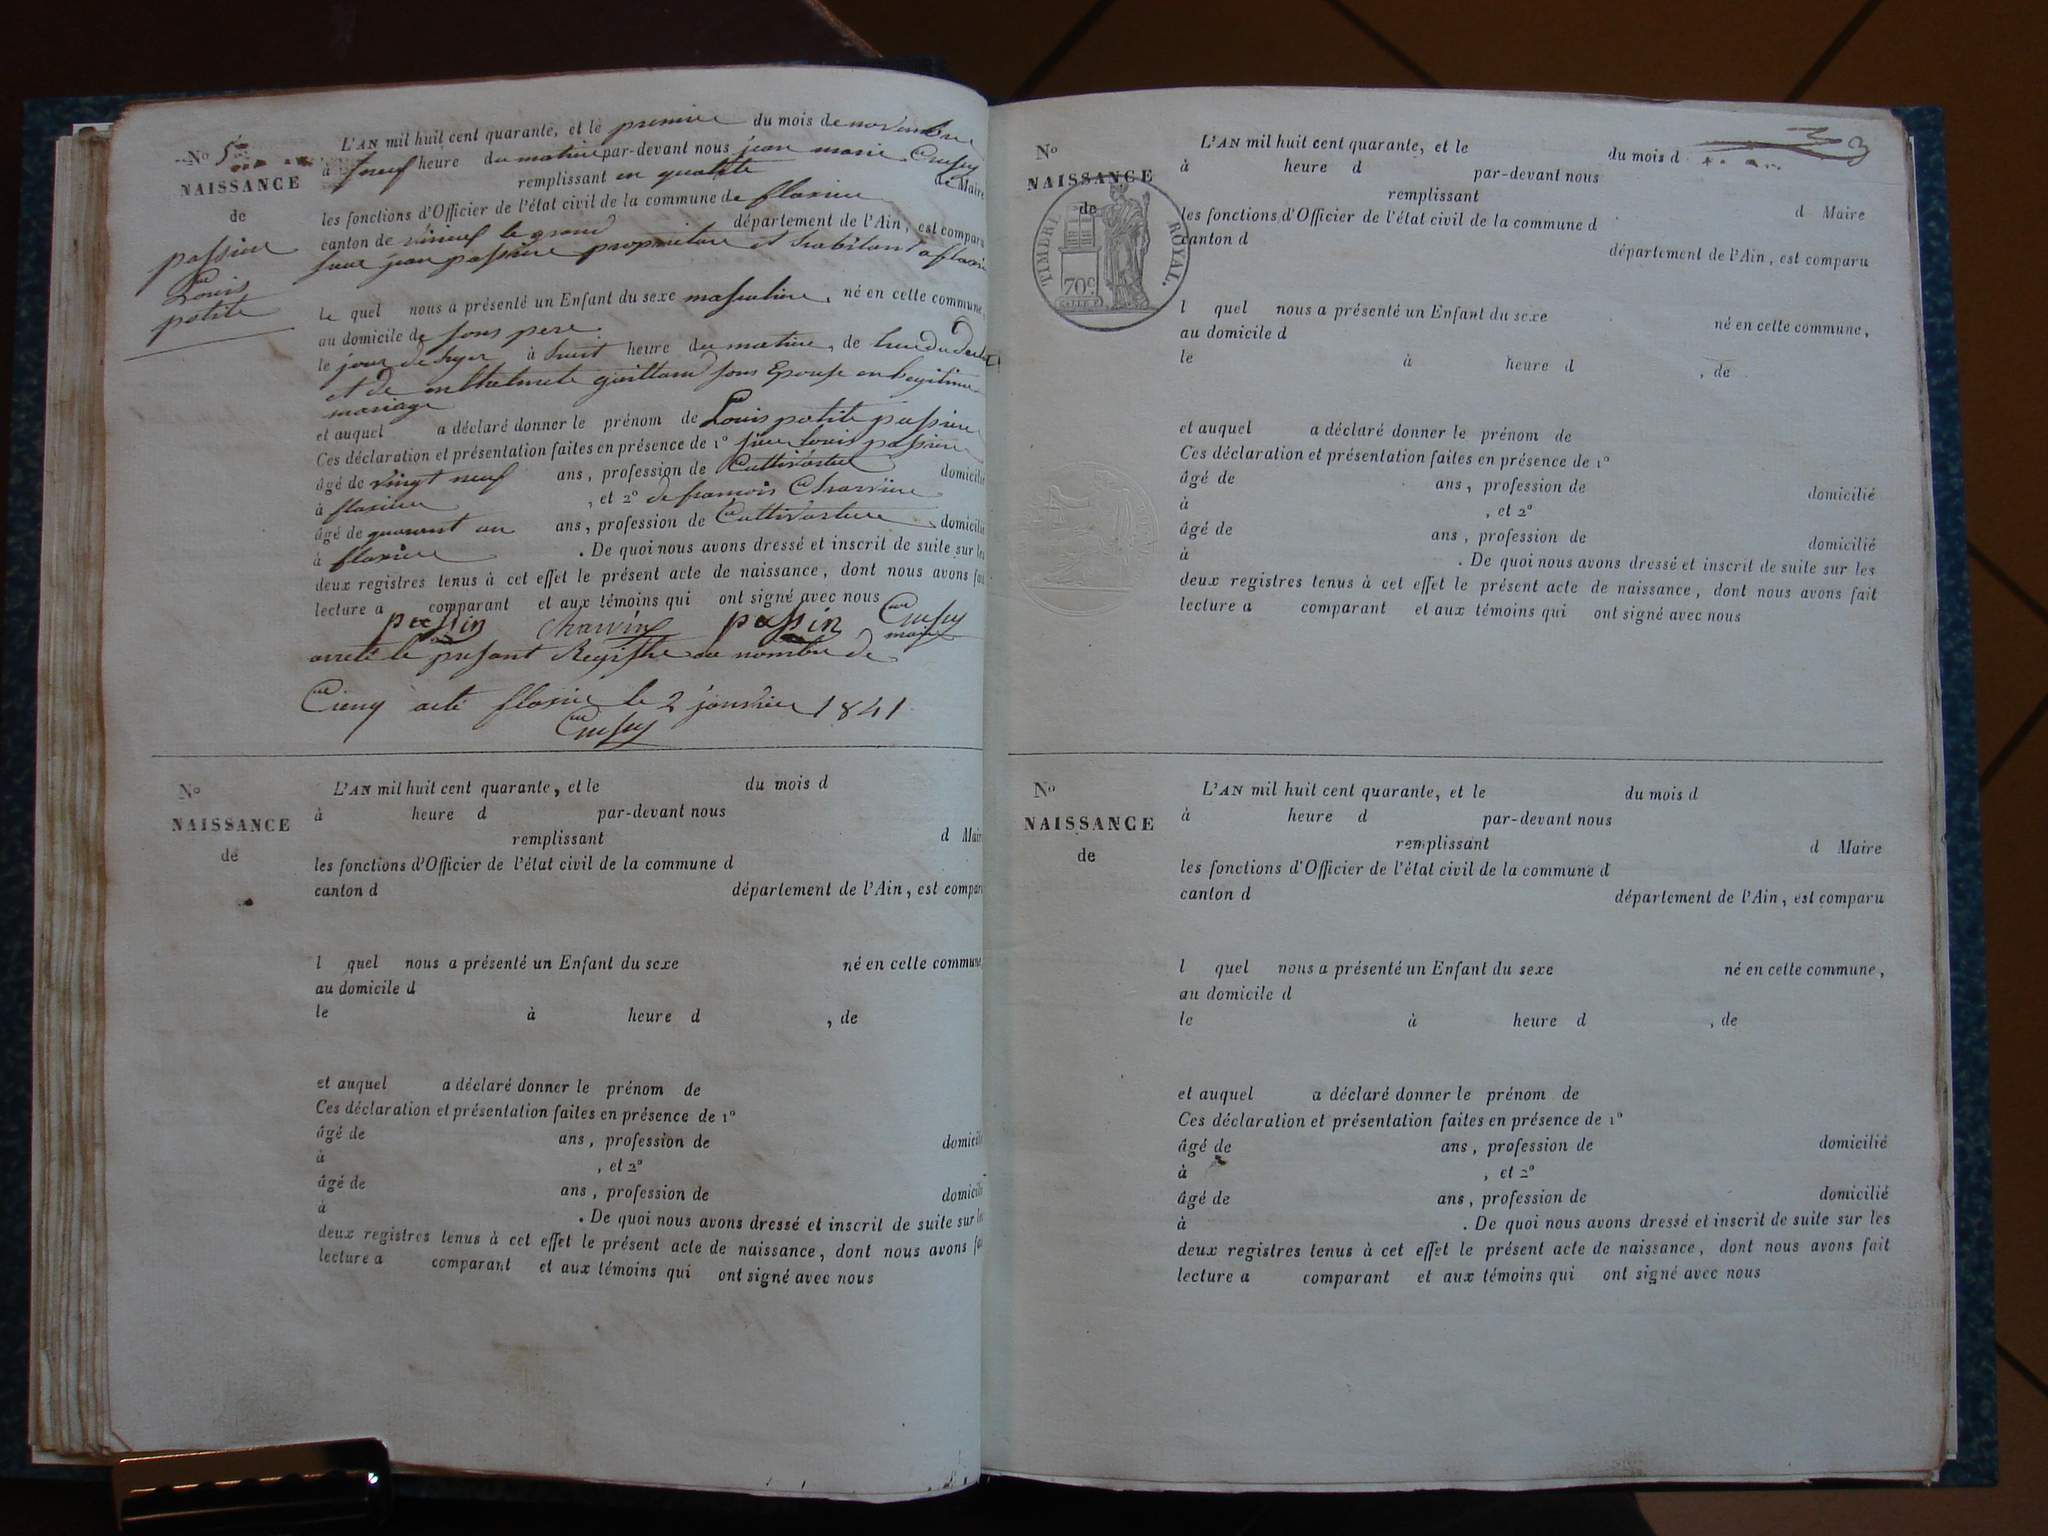 No 5
NAISSANCE
de
passin
Louis
petite
L'AN mil huit cent quarante, et le premier du mois de novembre
à neuf heure du matin par-devant nous jean marie Crussy
remplissant en qualité de Maire
les fonctions d'Officier de l'état civil de la commune de flaxieu
canton de virieu le grand département de l'Ain, est comparu
sieur jean passin proprietaire et habitant a flaxieu
le quel nous a présenté un Enfant du sexe masculin, né en cette commune,
au domicile de sons pere
le jour de hyer à huit heure du matin, de
et de guittand sons Epouse en legitime
mariage
et auquel a déclaré donner le prénom de Louis petite passin
Ces déclaration et présentation faites en présence de 1º sieur louis passin
âgé de vingt neuf ans, profession de Cultivateur domicilié
à flaxieu, et 2º de francois Charvin
âgé de quarent un ans, profession de Cultivateur domicilié
à flaxieu. De quoi nous avons dressé et inscrit de suite sur les
deux registres tenus à cet effet le présent acte de naissance, dont nous avons fait
lecture a comparant et aux témoins qui ont signé avec nous
passin charvin passin Crussy
maire
arreté le present Registre au nombre de
Cinq acte flaxieu le 2 janvier 1841
Crussy
No
NAISSANCE
de
L'AN mil huit cent quarante, et le du mois d
à heure d par-devant nous
remplissant d Maire
les fonctions d'Officier de l'état civil de la commune d
canton d département de l'Ain, est comparu
l quel nous a présenté un Enfant du sexe né en cette commune,
au domicile d
le à heure d , de
et auquel a déclaré donner le prénom de
Ces déclaration et présentation faites en présence de 1º
âgé de ans, profession de domicilié
à , et 2º
âgé de ans, profession de domicilié
à . De quoi nous avons dressé et inscrit de suite sur les
deux registres tenus à cet effet le présent acte de naissance, dont nous avons fai
lecture a comparant et aux témoins qui ont signé avec nous
3
No
NAISSANCE
de
TIMBRE ROYAL.
70c
L'AN mil huit cent quarante, et le du mois d
à heure d par-devant nous
remplissant d Maire
les fonctions d'Officier de l'état civil de la commune d
canton d département de l'Ain, est comparu
l quel nous a présenté un Enfant du sexe né en cette commune,
au domicile d
le à heure d , de
et auquel a déclaré donner le prénom de
Ces déclaration et présentation faites en présence de 1º
âgé de ans, profession de domicilié
à , et 2º
âgé de ans, profession de domicilié
à . De quoi nous avons dressé et inscrit de suite sur les
deux registres tenus à cet effet le présent acte de naissance, dont nous avons fait
lecture a comparant et aux témoins qui ont signé avec nous
No
NAISSANCE
de
L'AN mil huit cent quarante, et le du mois d
à heure d par-devant nous
remplissant d Maire
les fonctions d'Officier de l'état civil de la commune d
canton d département de l'Ain, est comparu
l quel nous a présenté un Enfant du sexe né en cette commune,
au domicile d
le à heure d , de
et auquel a déclaré donner le prénom de
Ces déclaration et présentation faites en présence de 1º
âgé de ans, profession de domicilié
à , et 2º
âgé de ans, profession de domicilié
à . De quoi nous avons dressé et inscrit de suite sur les
deux registres tenus à cet effet le présent acte de naissance, dont nous avons fait
lecture a comparant et aux témoins qui ont signé avec nous